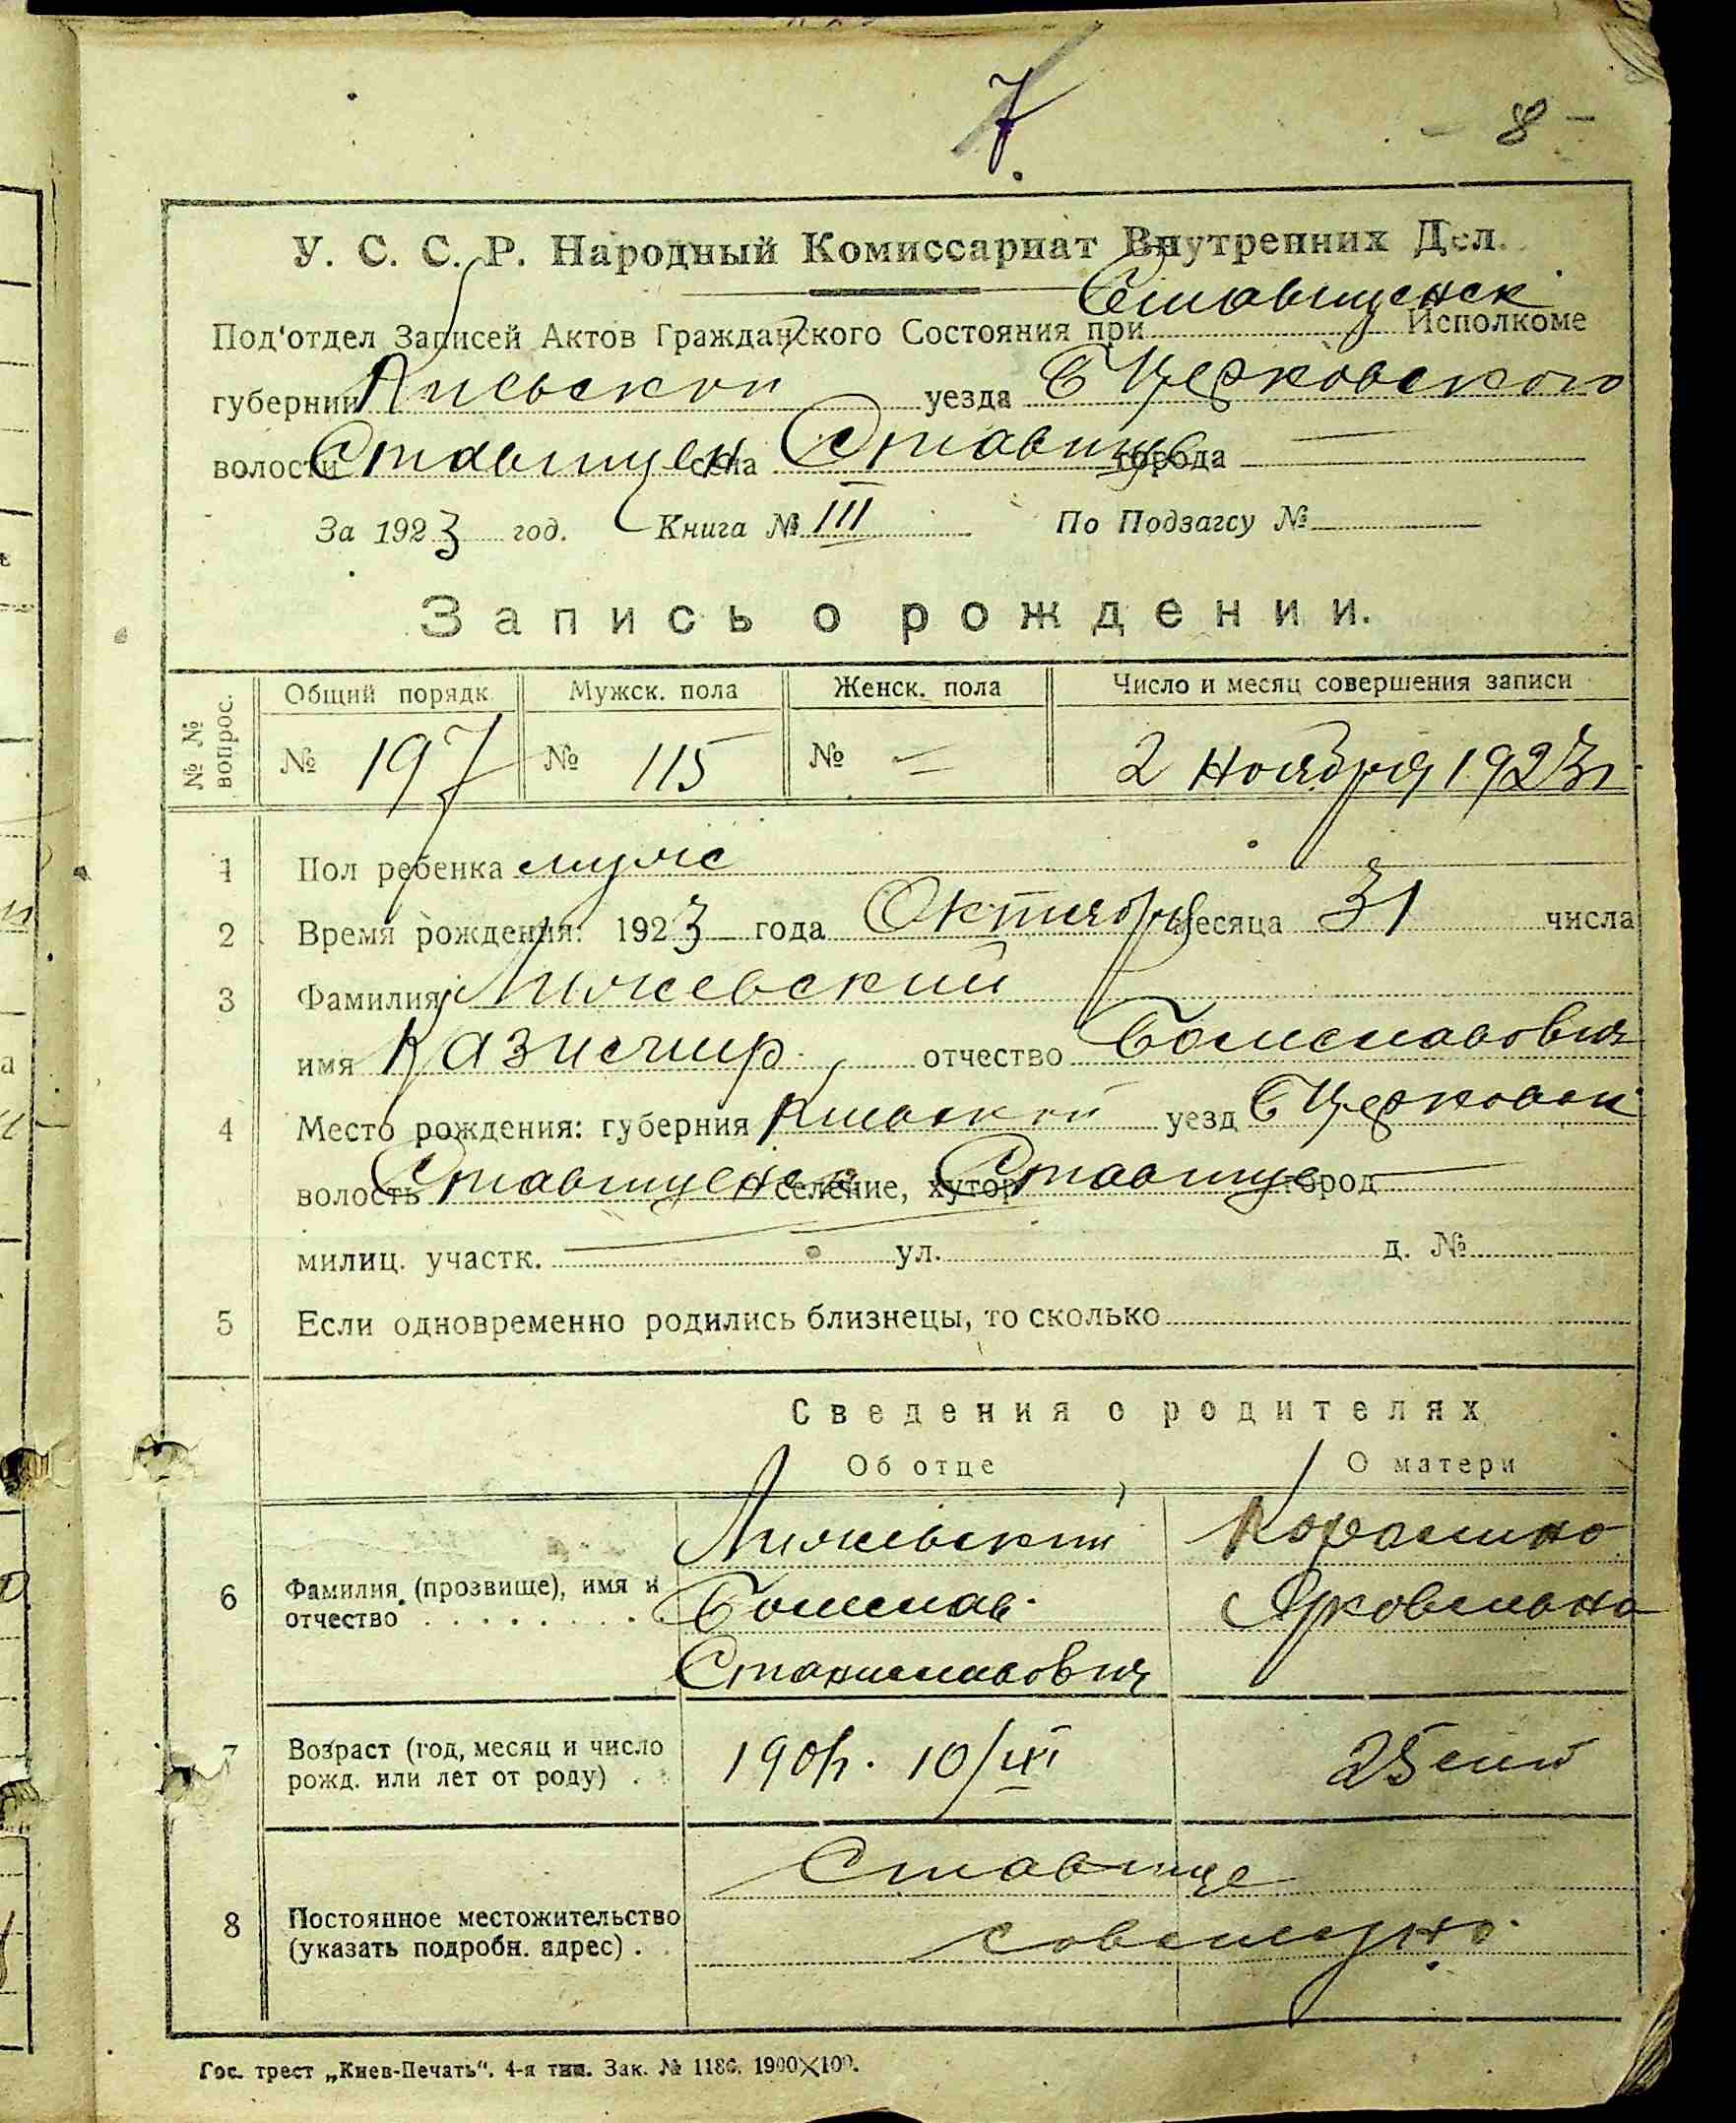 7.
- 8 -
У. С. С. Р. Народный Комиссариат Внутренних Дел.
Под'отдел Записей Актов Гражданского Состояния при Ставищенск Исполкоме
губернии Киевской уезда Б Церковского
волости Ставищен села Ставище города —
За 1923 год. Книга № III По Подзагсу №
Запись о рождении.
№ № вопрос. Общий порядк Мужск. пола Женск. пола Число и месяц совершения записи
№ 197 № 115 № — 2 Ноября 1923 г
1 Пол ребенка мужс
2 Время рождения: 1923 года Октября месяца 31 числа
3 Фамилия Лижевский
имя Казимир отчество Болиславович
4 Место рождения: губерния Киевской уезд Б Церковск
волость Ставищенск селение, хутор Ставище город —
милиц. участк. — ул. д. №
5 Если одновременно родились близнецы, то сколько
Сведения о родителях
Об отце О матери
6 Фамилия (прозвище), имя и отчество
Лижевский
Болислав
Станиславович
Яковлевна
7 Возраст (год, месяц и число рожд. или лет от роду) 10/ 25 лет
8 Постоянное местожительство (указать подробн. адрес)
Ставище
совместно
Гос. трест „Киев-Печать". 4-я тип. Зак. № 1186. 1900×100.